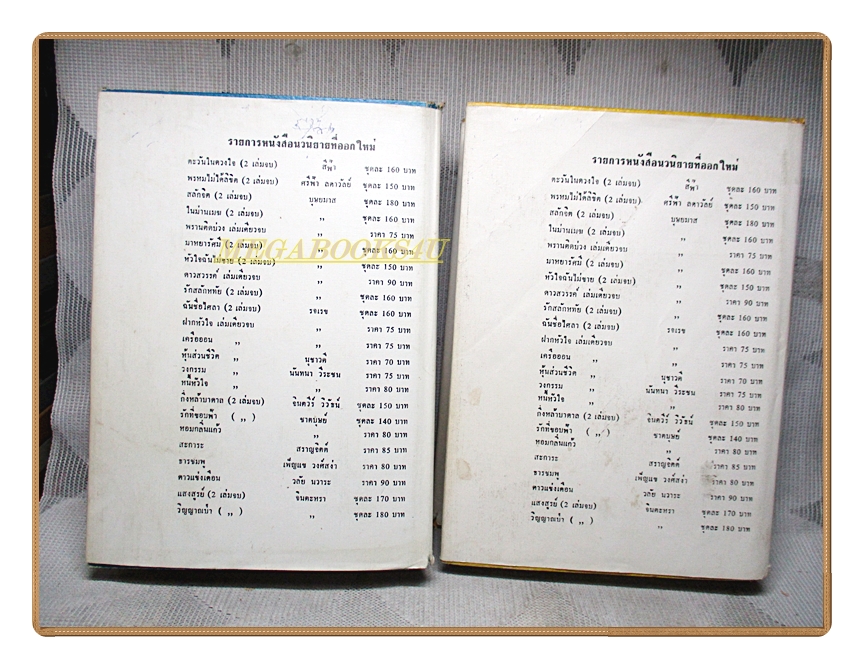 รายการหนังสือนวนิยายที่ออกใหม่
ตะวันในดวงใจ (2 เล่มจบ) สีฟ้า ชุดละ 160 บาท
พรหมไม่ได้ลิขิต (2 เล่มจบ) ศรีฟ้า ลดาวัลย์ ชุดละ 150 บาท
สลักจิต (2 เล่มจบ) บุษยมาส ชุดละ 180 บาท
ในม่านเมฆ (2 เล่มจบ) ,, ชุดละ 160 บาท
พรานติดบ่วง เล่มเดียวจบ ,, ราคา 75 บาท
มาหยารัศมี (2 เล่มจบ) ,, ชุดละ 160 บาท
หัวใจฉันไม่ขาย (2 เล่มจบ) ,, ชุดละ 150 บาท
ดาวสวรรค์ เล่มเดียวจบ ,, ราคา 90 บาท
รักสลักหทัย (2 เล่มจบ) ,, ชุดละ 160 บาท
ฉันชื่อศิลา (2 เล่มจบ) รจเรข ชุดละ 160 บาท
ฝากหัวใจ เล่มเดียวจบ ,, ราคา 75 บาท
เครือออน ,, ,, ราคา 75 บาท
หุ้นส่วนชีวิต ,, นุชาวดี ราคา 70 บาท
วงกรรม ,, นันทนา วีระชน ราคา 75 บาท
หนี้หัวใจ ,, ,, ราคา 80 บาท
กิ่งหล้าบาดาล (2 เล่มจบ) จินตวีร์ วิวัธน์ ชุดละ 150 บาท
รักที่ขอบฟ้า ( ,, ) ชาตบุษย์ ชุดละ 140 บาท
หอมกลิ่นแก้ว ,, ราคา 80 บาท
สะการะ สราญจิตต์ ราคา 85 บาท
ธารชมพู เพ็ญแข วงศ์สง่า ราคา 80 บาท
ดาวแข่งเดือน วลัย นวาระ ราคา 90 บาท
แสงสูรย์ (2 เล่มจบ) จินตะหรา ชุดละ 170 บาท
วิญญาณป่า ( ,, ) ,, ชุดละ 180 บาท
MEGABOOKS4U
รายการหนังสือนวนิยายที่ออกใหม่
ตะวันในดวงใจ (2 เล่มจบ) สีฟ้า ชุดละ 160 บาท
พรหมไม่ได้ลิขิต (2 เล่มจบ) ศรีฟ้า ลดาวัลย์ ชุดละ 150 บาท
สลักจิต (2 เล่มจบ) บุษยมาส ชุดละ 180 บาท
ในม่านเมฆ (2 เล่มจบ) ,, ชุดละ 160 บาท
พรานติดบ่วง เล่มเดียวจบ ,, ราคา 75 บาท
มาหยารัศมี (2 เล่มจบ) ,, ชุดละ 160 บาท
หัวใจฉันไม่ขาย (2 เล่มจบ) ,, ชุดละ 150 บาท
ดาวสวรรค์ เล่มเดียวจบ ,, ราคา 90 บาท
รักสลักหทัย (2 เล่มจบ) ,, ชุดละ 160 บาท
ฉันชื่อศิลา (2 เล่มจบ) รจเรข ชุดละ 160 บาท
ฝากหัวใจ เล่มเดียวจบ ,, ราคา 75 บาท
เครือออน ,, ,, ราคา 75 บาท
หุ้นส่วนชีวิต ,, นุชาวดี ราคา 70 บาท
วงกรรม ,, นันทนา วีระชน ราคา 75 บาท
หนี้หัวใจ ,, ,, ราคา 80 บาท
กิ่งหล้าบาดาล (2 เล่มจบ) จินตวีร์ วิวัธน์ ชุดละ 150 บาท
รักที่ขอบฟ้า ( ,, ) ชาตบุษย์ ชุดละ 140 บาท
หอมกลิ่นแก้ว ,, ราคา 80 บาท
สะการะ สราญจิตต์ ราคา 85 บาท
ธารชมพู เพ็ญแข วงศ์สง่า ราคา 80 บาท
ดาวแข่งเดือน วลัย นวาระ ราคา 90 บาท
แสงสูรย์ (2 เล่มจบ) จินตะหรา ชุดละ 170 บาท
วิญญาณป่า ( ,, ) ,, ชุดละ 180 บาท